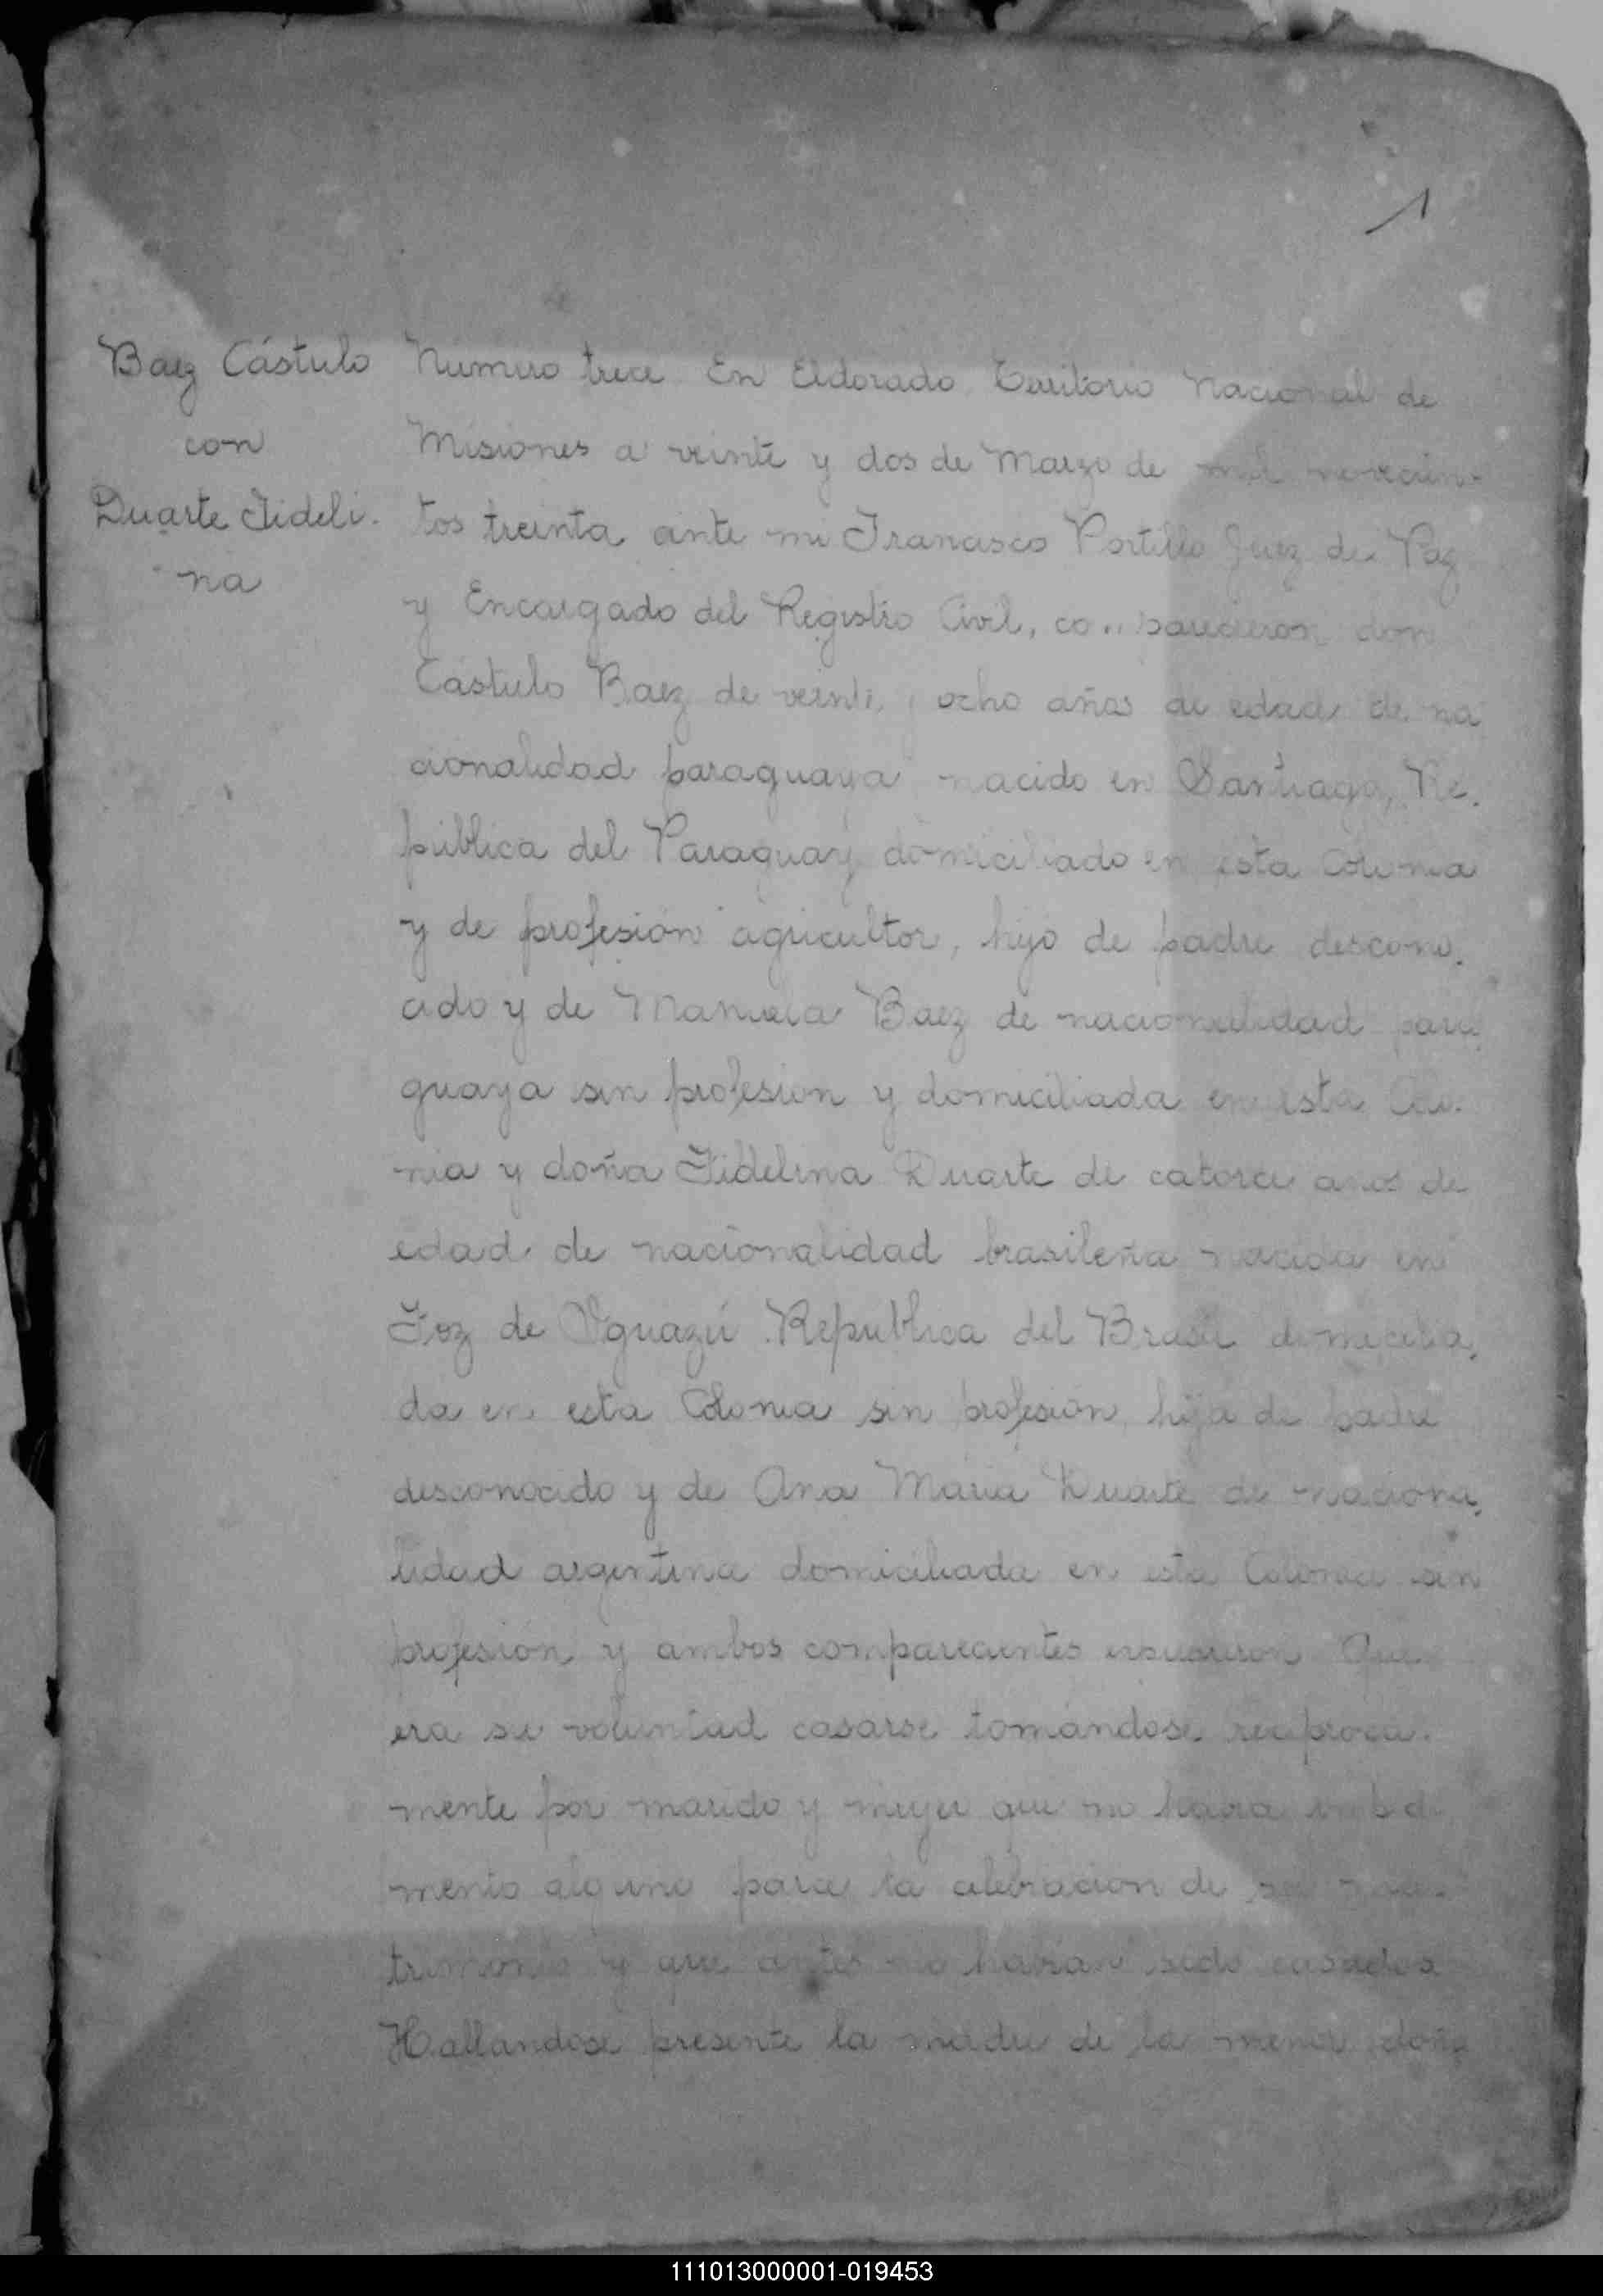 1
Baez Cástulo
con
Duarte Fideli-
na
Número trece En Eldorado Territorio Nacional de
Misiones a veinte y dos de Marzo de mil novecien-
tos treinta ante mi Francisco Portillo Juez de Paz
y Encargado del Registro Civil, comparecieron don
Cástulo Baez de veinte y ocho años de edad de na
cionalidad paraguaya nacido en Santiago, Re-
pública del Paraguay domiciliado en esta Colonia
y de profesión agricultor, hijo de padre descono-
cido y de Manuela Baez de nacionalidad para-
guaya sin profesion y domiciliada en esta Colo-
nia y doña Fidelina Duarte de catorce años de
edad de nacionalidad brasileña nacida en
Foz de Yguazú Republica del Brasil domicilia-
da en esta Colonia sin profesion hija de padre
desconocido y de Ana Maria Duarte de naciona-
lidad argentina domiciliada en esta Colonia sin
profesión y ambos comparecientes expusieron Que
era su voluntad casarse tomándose reciproca-
mente por marido y mujer que no havia impedi
mento alguno para la celebracion de su ma-
trimonio y que antes no havian sido casados
Hallandose presente la madre de la menor doña
111013000001-019453